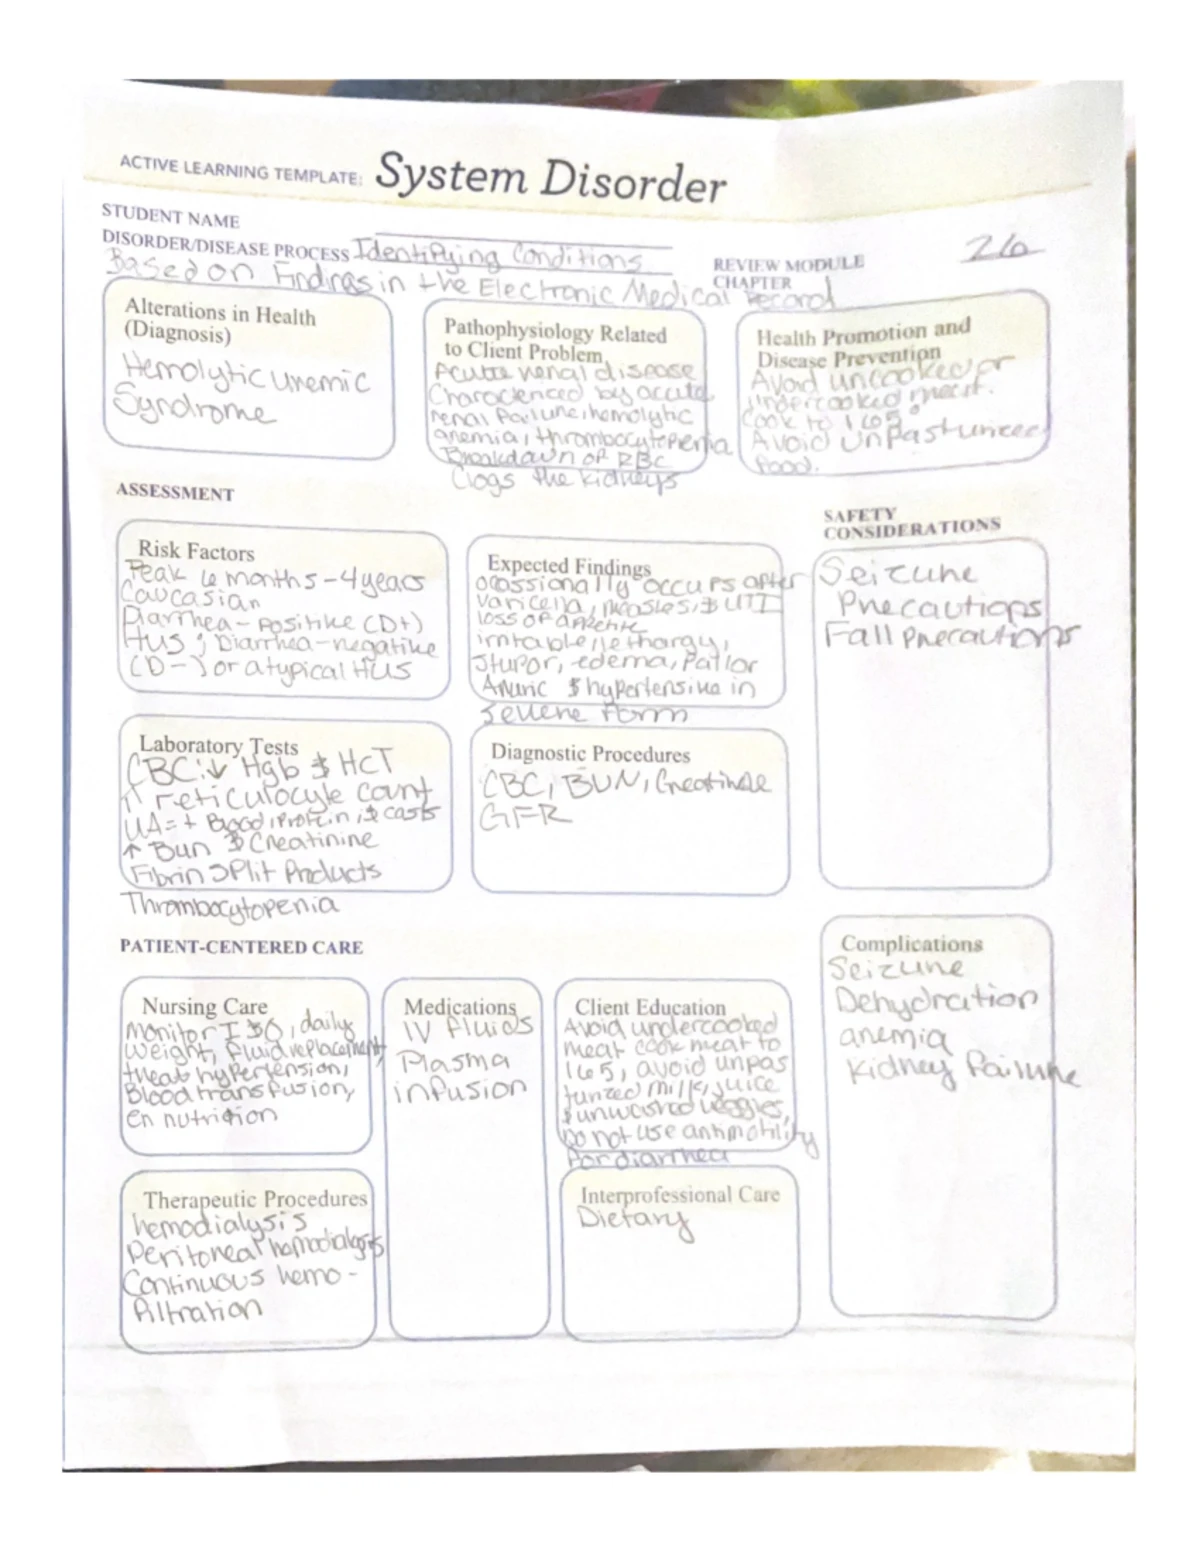 ACTIVE LEARNING TEMPLATE: System Disorder
STUDENT NAME
DISORDER/DISEASE PROCESS Identifying Conditions
Based on Findings in the Electronic Medical Record
REVIEW MODULE
CHAPTER
26
Alterations in Health
(Diagnosis)
Hemolytic uremic
Syndrome
Pathophysiology Related
to Client Problem
Acute renal disease
Characterized by acute
renal failure, hemolytic
anemia, thrombocytopenia
Breakdown of RBC
Clogs the kidneys
Health Promotion and
Disease Prevention
Avoid uncooked or
undercooked meat.
Cook to 165°
Avoid Unpasturized
food.
ASSESSMENT
Risk Factors
Peak 6 months-4years
Caucasian
Diarrhea-positike (D+)
Hus; Diarrhea-negatike
(D-) or atypical Hus
Expected Findings
ocassionally occurs after
varicella, measles, $ UTI
loss of appetite
irritable, lethargy,
Stupor, edema, Pallor
Anuric $ hypertensive in
severe form
SAFETY
CONSIDERATIONS
Seizure
Precautions
Fall precautions
Laboratory Tests
CBC: ↓ Hgb $ HcT
↑ reticulocyte count
UA = + Blood, Protein, $ casts
↑ Bun $ Creatinine
Fibrin Split Products
Thrombocytopenia
Diagnostic Procedures
CBC, BUN, Creatinine
GFR
PATIENT-CENTERED CARE
Nursing Care
monitor I $ O, daily
weight, fluid replacement,
treat hypertension,
Blood transfusion,
en nutrition
Medications
IV fluids
Plasma
infusion
Client Education
Avoid undercooked
meat cook meat to
165, avoid unpas
turized milk, juice
$ unwashed veggies,
Do not use antimotility
for diarrhea
Complications
Seizure
Dehydration
anemia
Kidney failure
Therapeutic Procedures
hemodialysis
Peritoneal hemodialysis
Continuous hemo-
filtration
Interprofessional Care
Dietary